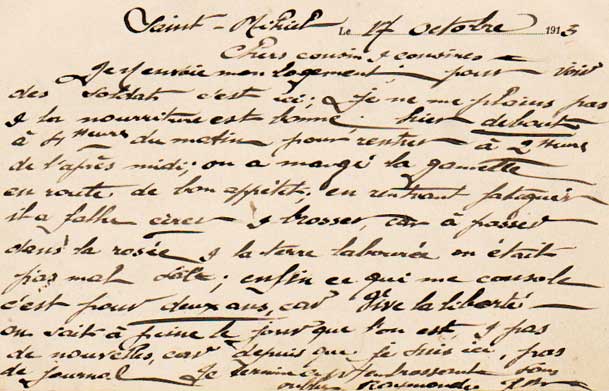 Saint-Mihiel Le 17 octobre 1913
Chers cousin & cousines
Je t'envoie mon logement pour voir
des soldats c'est ici; je ne me plains pas
& la nourriture est bonne. hier debout
à 4 heures du matin pour rentrer à 2 heures
de l'après midi; on a mangé la gamelle
en route de bon appétit, en rentrant fatiguer
il a fallu cirer & brosser, car à passer
dans la rosée & la terre labourée on était
pas mal sale; enfin ce qui me console
c'est pour deux ans, car Vive la liberté
on sait à peine le jour que l'on est, & pas
de nouvelles, car depuis que je suis ici, pas
de journal Je termine en embrassant vous
oublier Raymonde